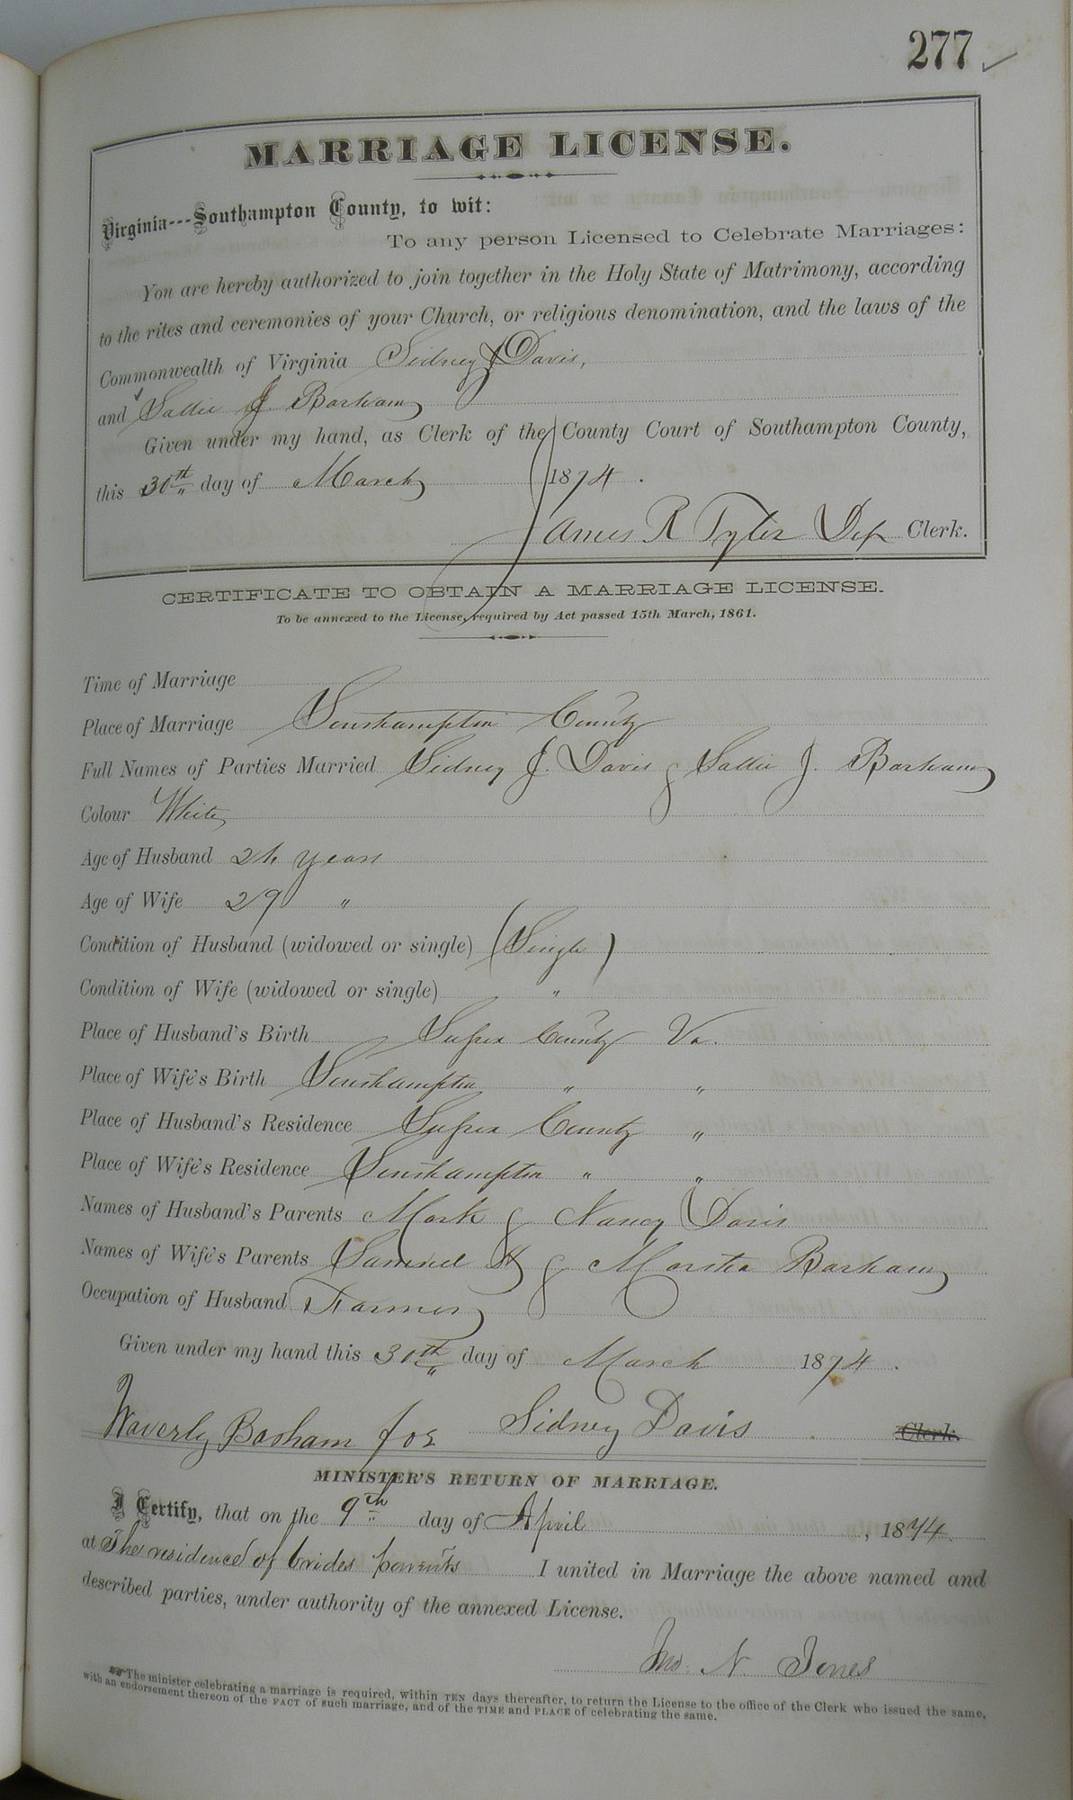 277
MARRIAGE LICENSE.
Virginia---Southampton County, to wit:
To any person Licensed to Celebrate Marriages:
You are hereby authorized to join together in the Holy State of Matrimony, according
to the rites and ceremonies of your Church, or religious denomination, and the laws of the
Commonwealth of Virginia Sidney J Davis,
and Sallie J Barham
Given under my hand, as Clerk of the County Court of Southampton County,
this 30th day of March 1874.
James R Tyler Dep Clerk.
CERTIFICATE TO OBTAIN A MARRIAGE LICENSE.
To be annexed to the License, required by Act passed 15th March, 1861.
Time of Marriage
Place of Marriage Southampton County
Full Names of Parties Married Sidney J. Davis & Sallie J. Barham
Colour White
Age of Husband years
Age of Wife 29 "
Condition of Husband (widowed or single) (Single)
Condition of Wife (widowed or single) "
Place of Husband's Birth Sussex County Va.
Place of Wife's Birth Southampton " "
Place of Husband's Residence Sussex County "
Place of Wife's Residence Southampton " "
Names of Husband's Parents Mark & Nancy Davis
Names of Wife's Parents Samuel & Martha Barham
Occupation of Husband Farmer
Given under my hand this 30th day of March 1874.
Waverly Barham for Sidney Davis Clerk.
MINISTER'S RETURN OF MARRIAGE.
I Certify, that on the 9th day of April, 1874.
at The residence of brides parents I united in Marriage the above named and
described parties, under authority of the annexed License.
Jno. N. Jones
The minister celebrating a marriage is required, within TEN days thereafter, to return the License to the office of the Clerk who issued the same,
with an endorsement thereon of the FACT of such marriage, and of the TIME and PLACE of celebrating the same.